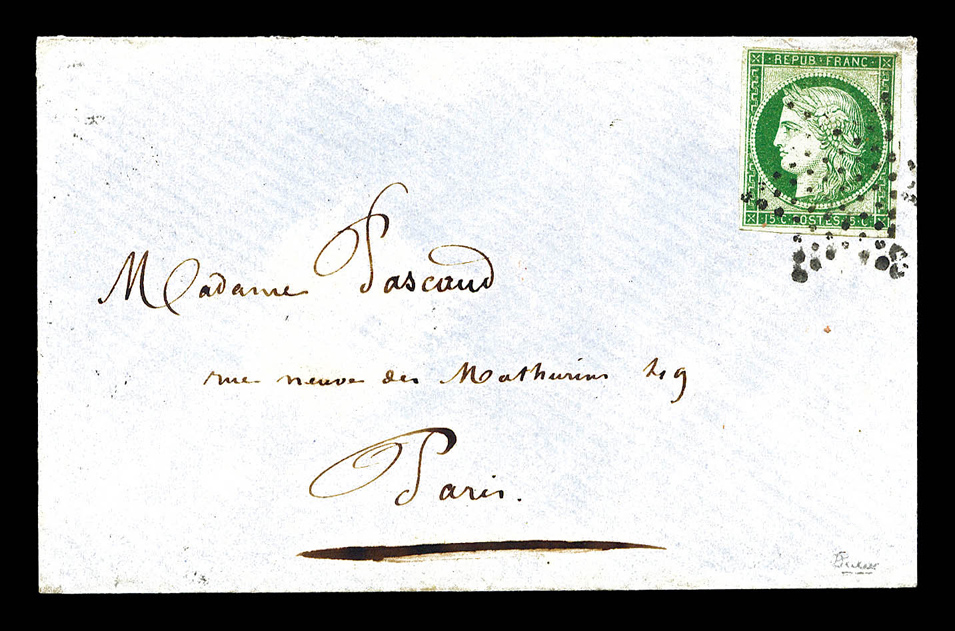 REPUB·FRANC·
15 C·POSTES·15 C
Madame Pascaud
rue neuve des Mathurins 49
Paris.